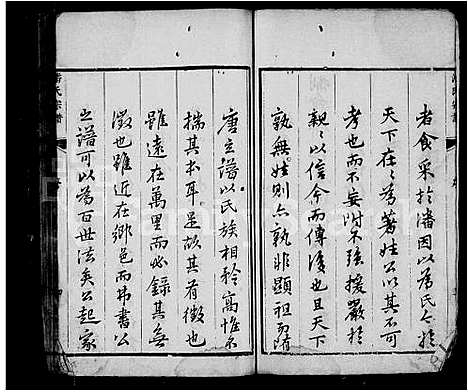 者食采於潘因以為氏今於
天下在在為著姓公以其不可
考也而不妄附不強援嚴於
親親以信今而傳後也且天下
孰無姓則亦孰非顯祖而隋
唐立譜以民族相矜高惟不
揣其本耳是故其有徵也
雖遠在萬里而必錄其無
徵也雖近在鄉邑而弗書公
之譜可以為百世法矣公起家
潘氏宗譜